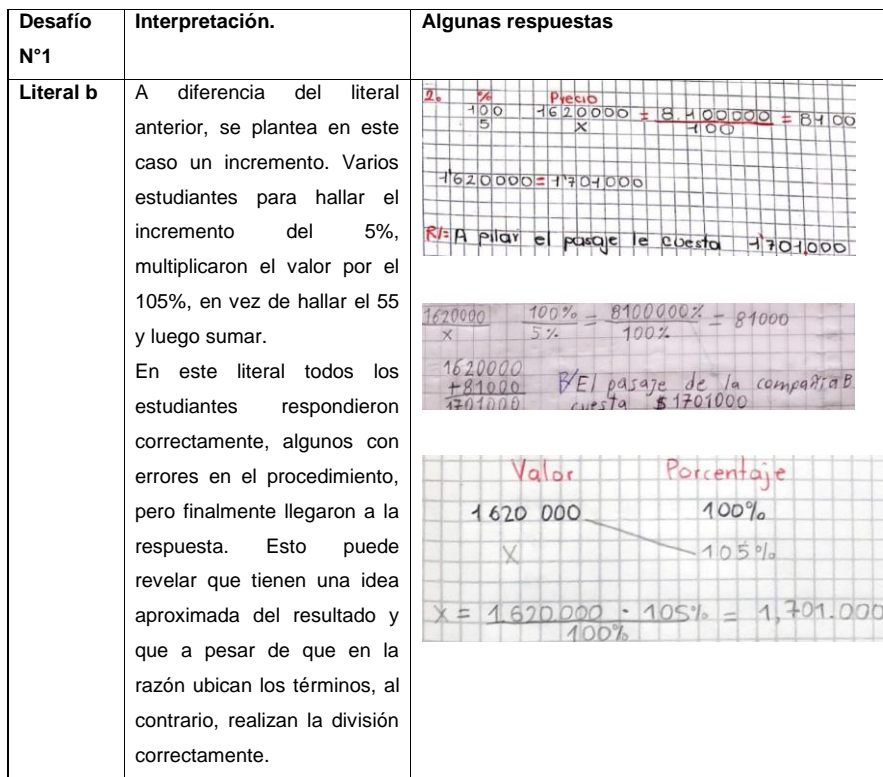 Desafío
N°1
Interpretación.
Algunas respuestas
Literal b
A diferencia del literal
anterior, se plantea en este
caso un incremento. Varios
estudiantes para hallar el
incremento del 5%,
multiplicaron el valor por el
105%, en vez de hallar el 55
y luego sumar.
En este literal todos los
estudiantes respondieron
correctamente, algunos con
errores en el procedimiento,
pero finalmente llegaron a la
respuesta. Esto puede
revelar que tienen una idea
aproximada del resultado y
que a pesar de que en la
razón ubican los términos, al
contrario, realizan la división
correctamente.
2. % Precio
100 1620000 = 8.100000 = 8100
5 X 100
1'620000=1'701000
R/= A pilar el pasaje le cuesta 1'701000
1620000 100% = 8100000% = 81000
X 5% 100%
1620000
+81000
1701000
R/ El pasaje de la compañia B
cuesta $1701000
Valor Porcentaje
1 620 000 100%
X 105%
X = 1.620.000 · 105% = 1,701.000
100%